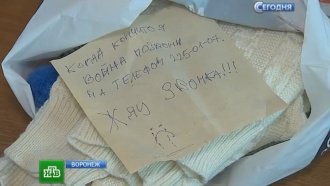 СЕГОДНЯ
КОГДА КОНЧИТСЯ
ВОЙНА ПОЗВОНИ
НА ТЕЛЕФОН 225-01-07.
ЖДУ ЗВОНКА!!!
ВОРОНЕЖ
НТВ